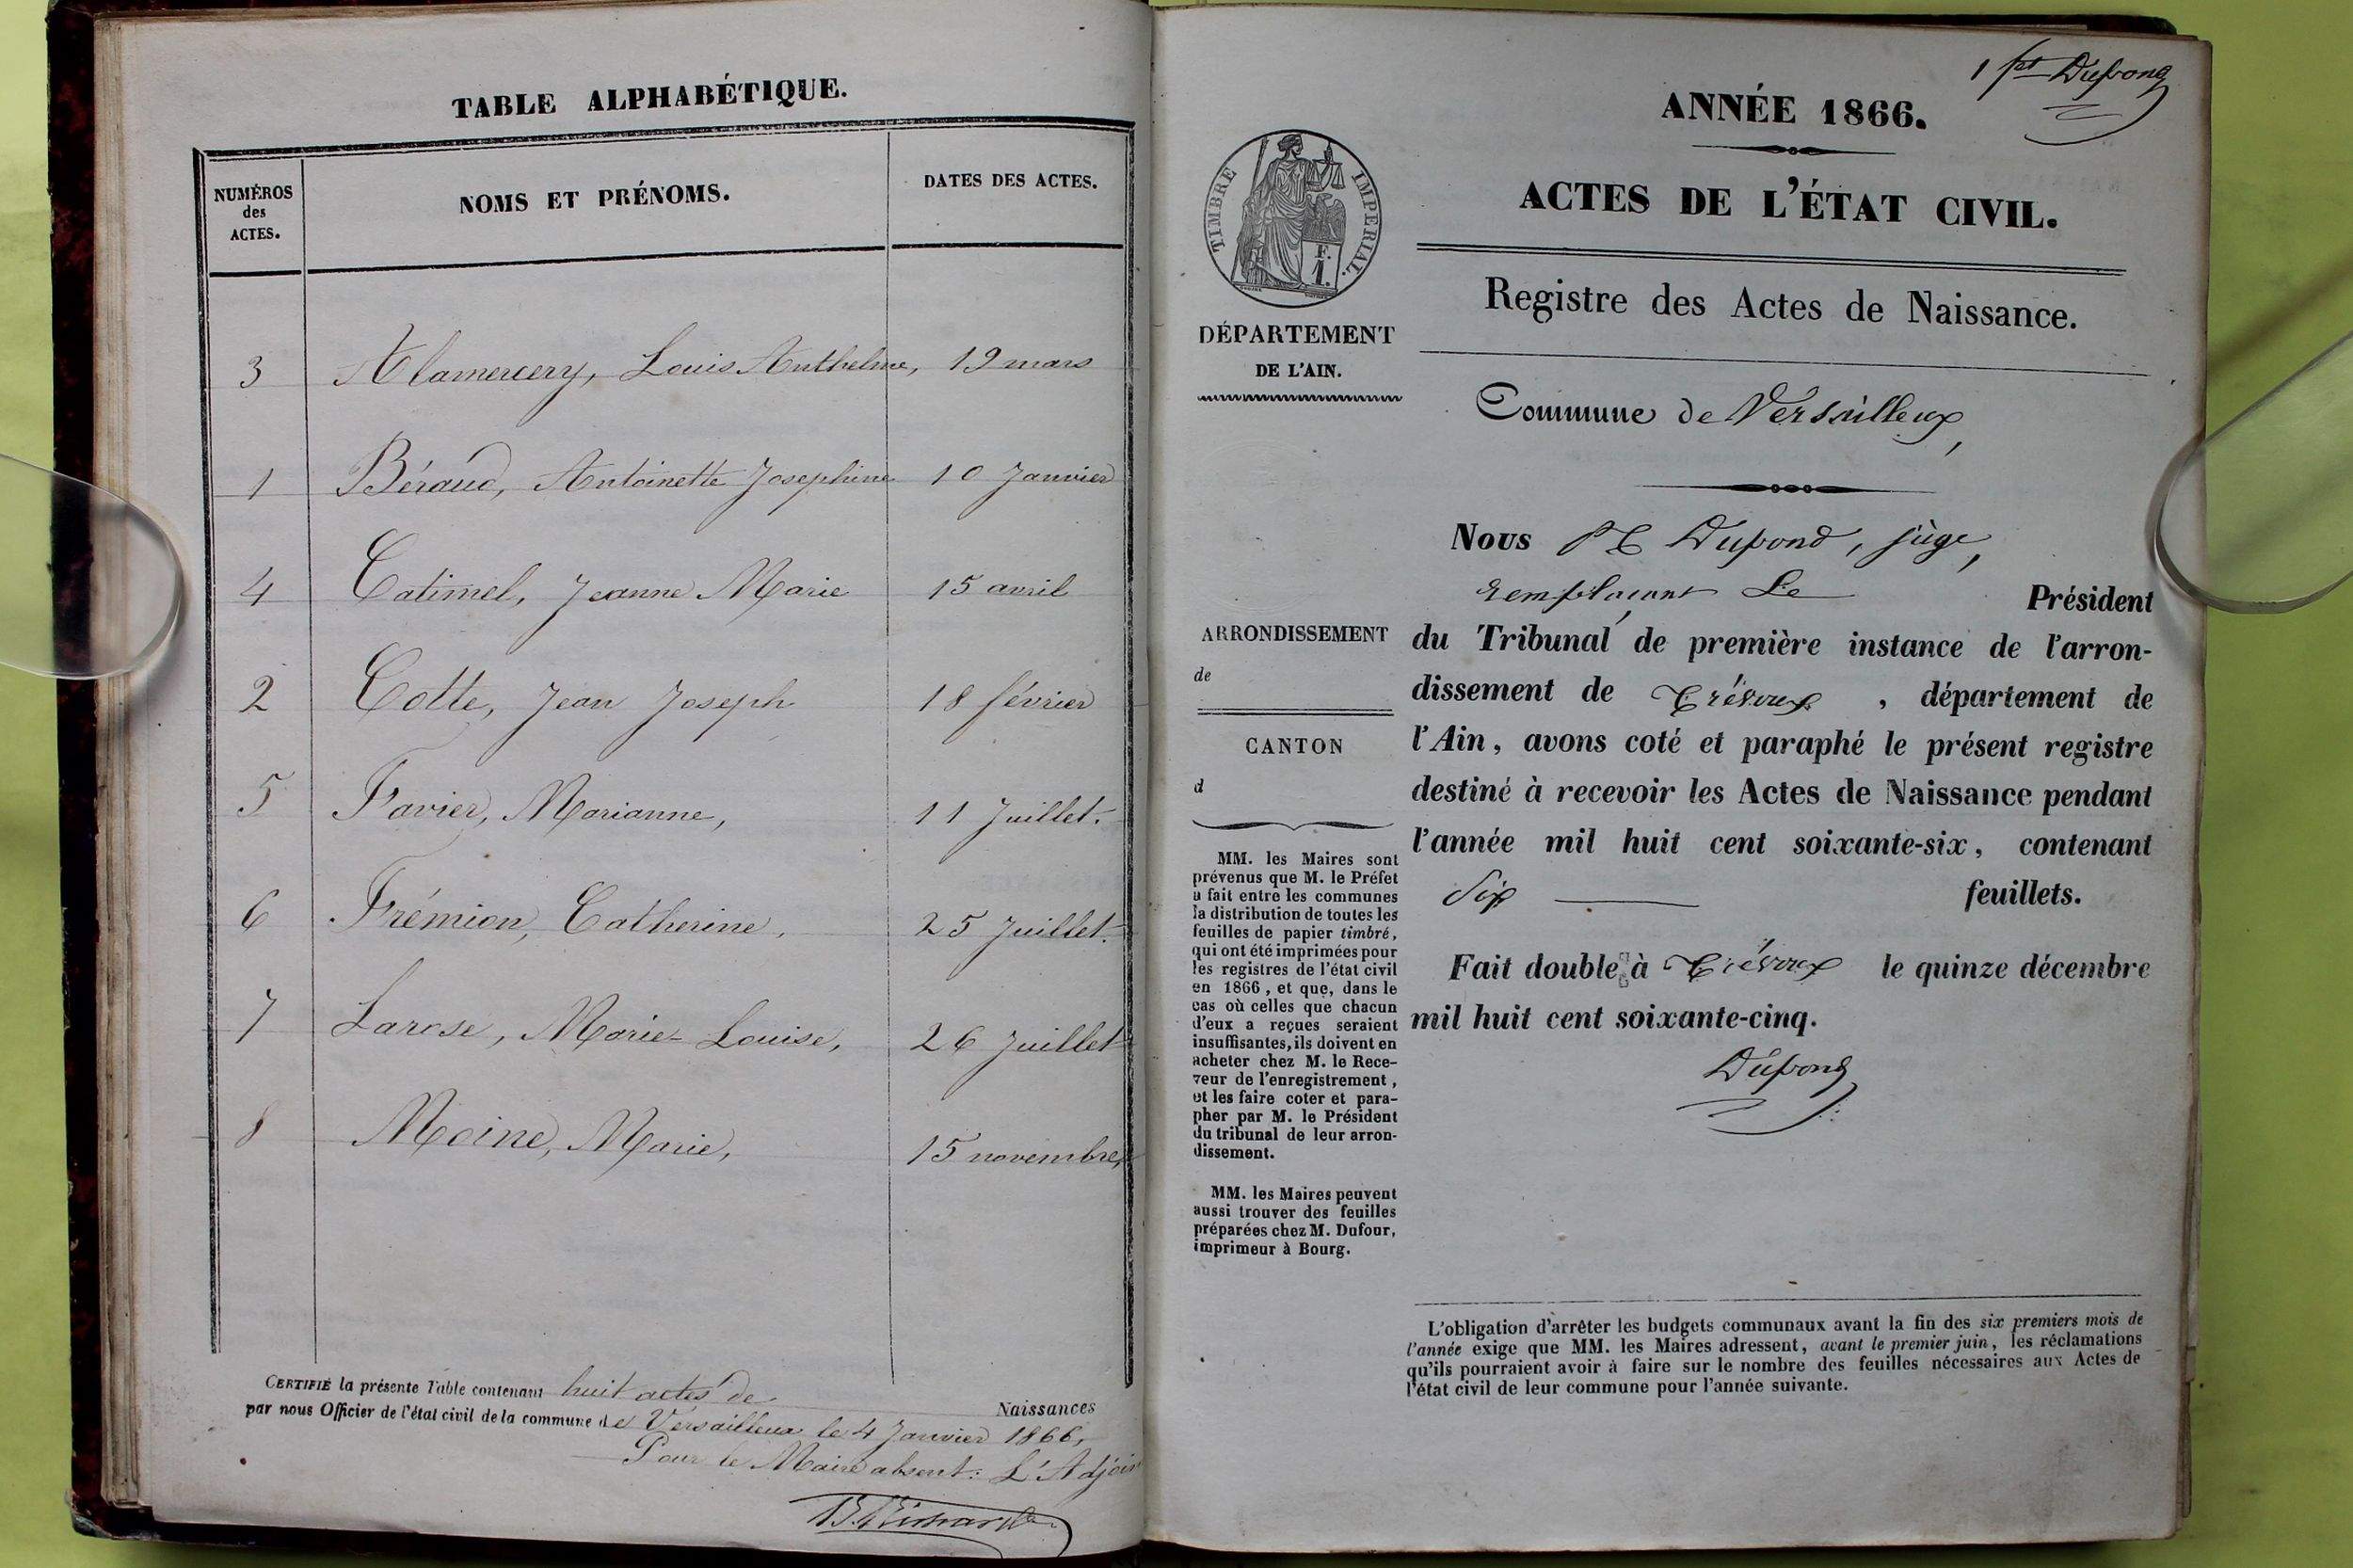 TABLE ALPHABÉTIQUE.
NUMÉROS
des
ACTES.
NOMS ET PRÉNOMS.
DATES DES ACTES.
3 Alamercery, Louis Anthelme, 19 mars
1 Béraud, Antoinette Josephine 10 Janvier
4 Catimel, Jeanne Marie 15 avril
2 Cotte, Jean Joseph 18 février
5 Favier, Marianne, 11 Juillet.
6 Frémion, Catherine, 25 Juillet.
7 Larose, Marie-Louise, 26 Juillet
8 Moine, Marie, 15 novembre,
CERTIFIÉ la présente Table contenant huit actes de Naissances
par nous Officier de l'état civil de la commune de Versailleux le 4 Janvier 1866,
Pour le Maire absent: L'Adjoint
1 fet Dupond
ANNÉE 1866.
ACTES DE L'ÉTAT CIVIL.
Registre des Actes de Naissance.
TIMBRE IMPERIAL.
F.
1.
DÉPARTEMENT
DE L'AIN.
Commune de Versailleux,
Nous Dupond, juge,
remplaçant Le Président
du Tribunal de première instance de l'arron-
dissement de Trévoux, département de
l'Ain, avons coté et paraphé le présent registre
destiné à recevoir les Actes de Naissance pendant
l'année mil huit cent soixante-six, contenant
Six feuillets.
Fait double à Trévoux le quinze décembre
mil huit cent soixante-cinq.
Dupond
ARRONDISSEMENT
de
CANTON
d
MM. les Maires sont
prévenus que M. le Préfet
a fait entre les communes
la distribution de toutes les
feuilles de papier timbré,
qui ont été imprimées pour
les registres de l'état civil
en 1866, et que, dans le
cas où celles que chacun
d'eux a reçues seraient
insuffisantes, ils doivent en
acheter chez M. le Rece-
veur de l'enregistrement,
et les faire coter et para-
pher par M. le Président
du tribunal de leur arron-
dissement.
MM. les Maires peuvent
aussi trouver des feuilles
préparées chez M. Dufour,
imprimeur à Bourg.
L'obligation d'arrêter les budgets communaux avant la fin des six premiers mois de
l'année exige que MM. les Maires adressent, avant le premier juin, les réclamations
qu'ils pourraient avoir à faire sur le nombre des feuilles nécessaires aux Actes de
l'état civil de leur commune pour l'année suivante.